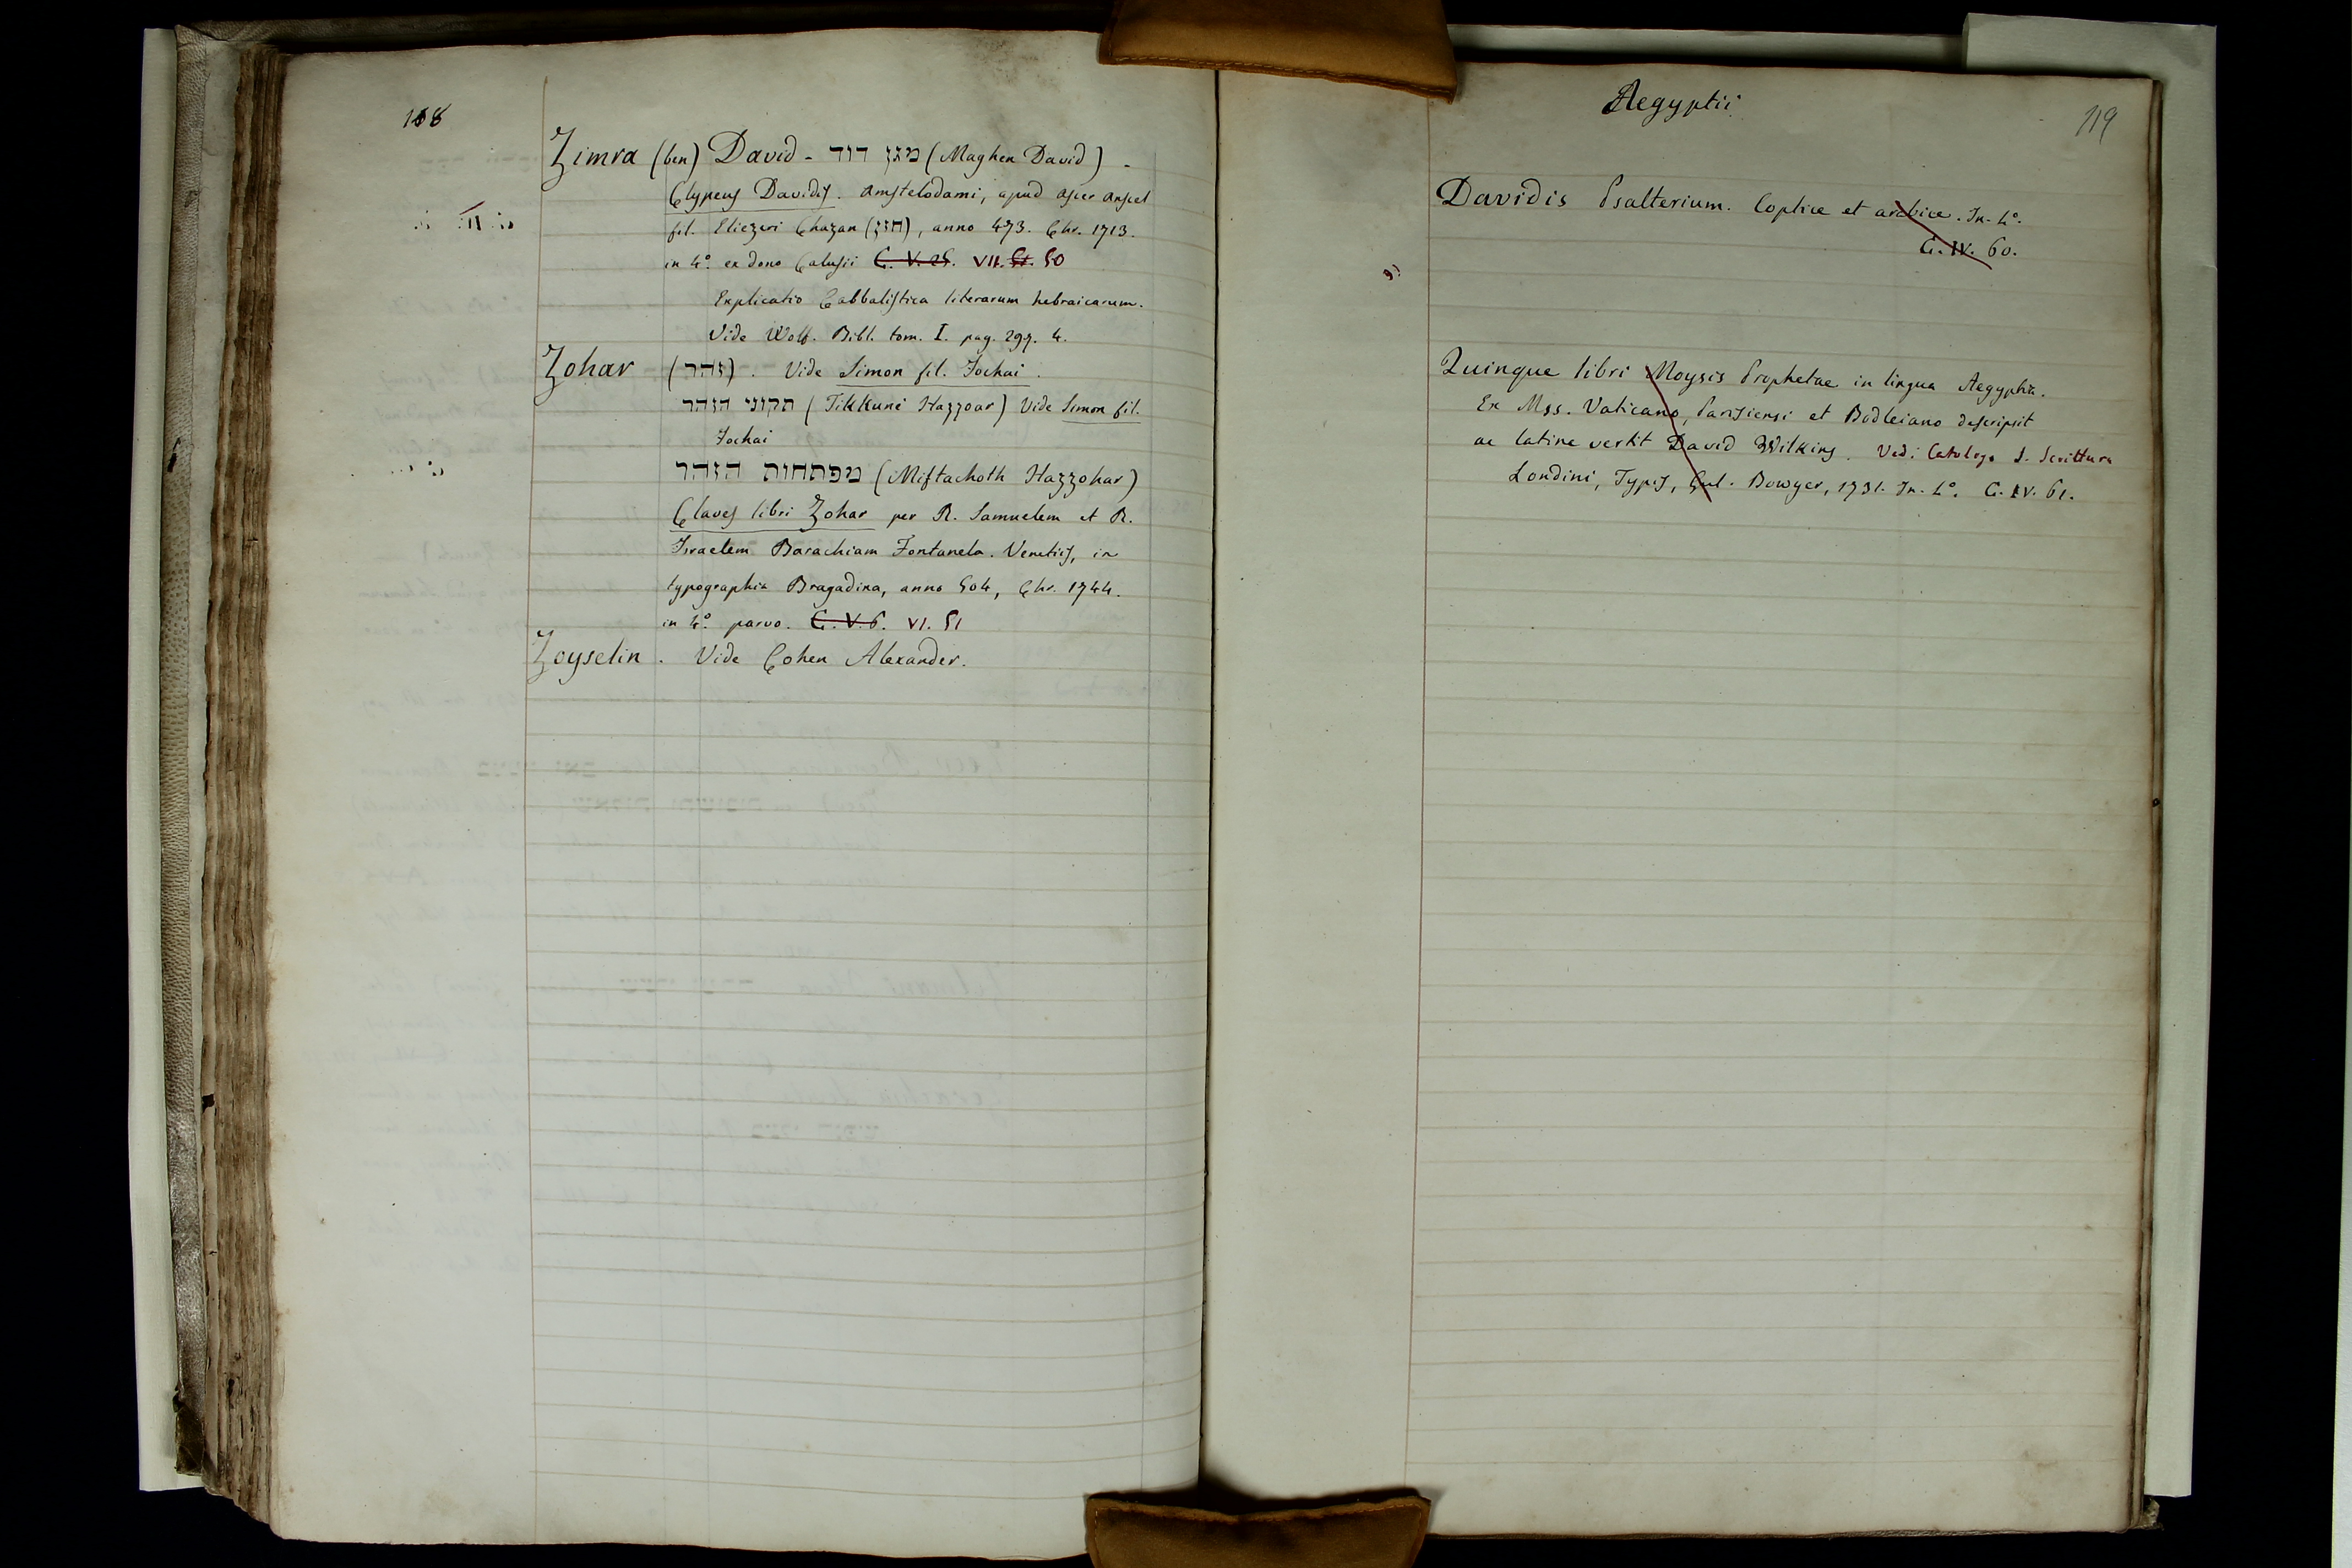 118
Zimra (ben) David - מגן דוד (Maghen David) -
Clypeus Davidis. Amstelodami, apud Aser Anscel
fil. Eliezeri Chazan (חזן), anno 473. Chr. 1713.
in 4.° ex dono Calusii C. V. 25. VII. 50
Explicatio Cabbalistica literarum hebraicarum.
Vide Wolf. Bibl. tom. I. pag. 299. 4.
Zohar (זהר). Vide Simon fil. Jochai.
תקוני הזהר (Tikkuni Hazzoar) Vide Simon fil.
Jochai
מפתחות הזהר (Miftachoth Hazzohar)
Claves libri Zohar per R. Samuelem et R.
Israelem Barachiam Fontanela. Venetiis, in
typographia Bragadina, anno 504, Chr. 1744.
in 4.° parvo. C. V. 6. VI. 51
Zoyselin. Vide Cohen Alexander.
Aegyptii
119
Davidis Psalterium. Coptice et arabice. In-4°.
C. IV. 60.
Quinque libri Moysis Prophetae in lingua Aegyptia.
Ex Mss. Vaticano, Parisiensi et Bodleiano descripsit
ac latine vertit David Wilkins. Vedi Catalogo S. Scrittura
Londini, Typis, Gul. Bowyer, 1731. In-4°. C. IV. 61.